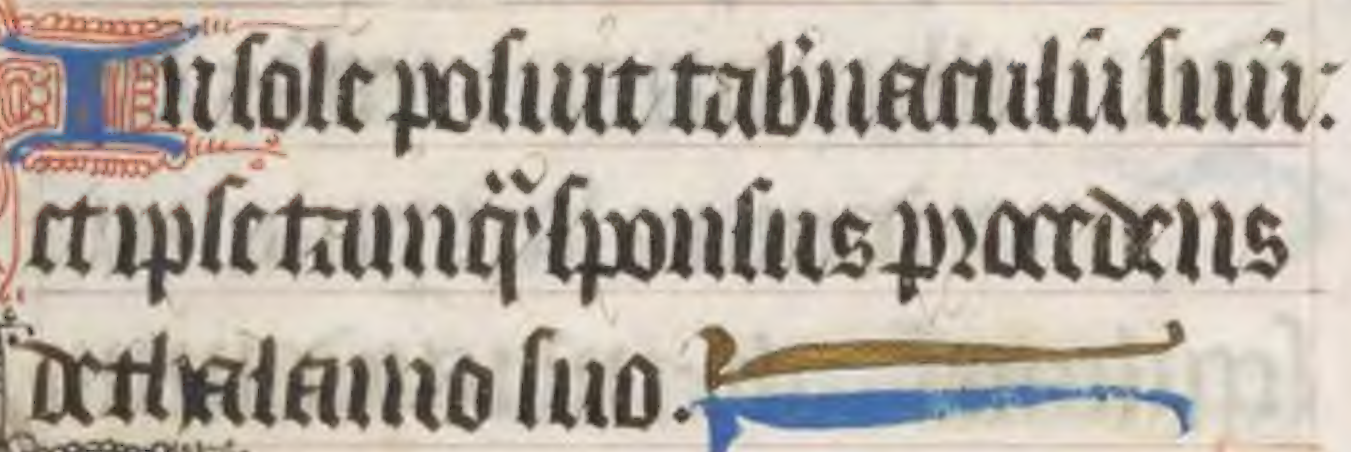 In sole posuit tab̉naculū suū:
et ipse tamq̄ᷓ sponsus procedens
de thalamo suo.